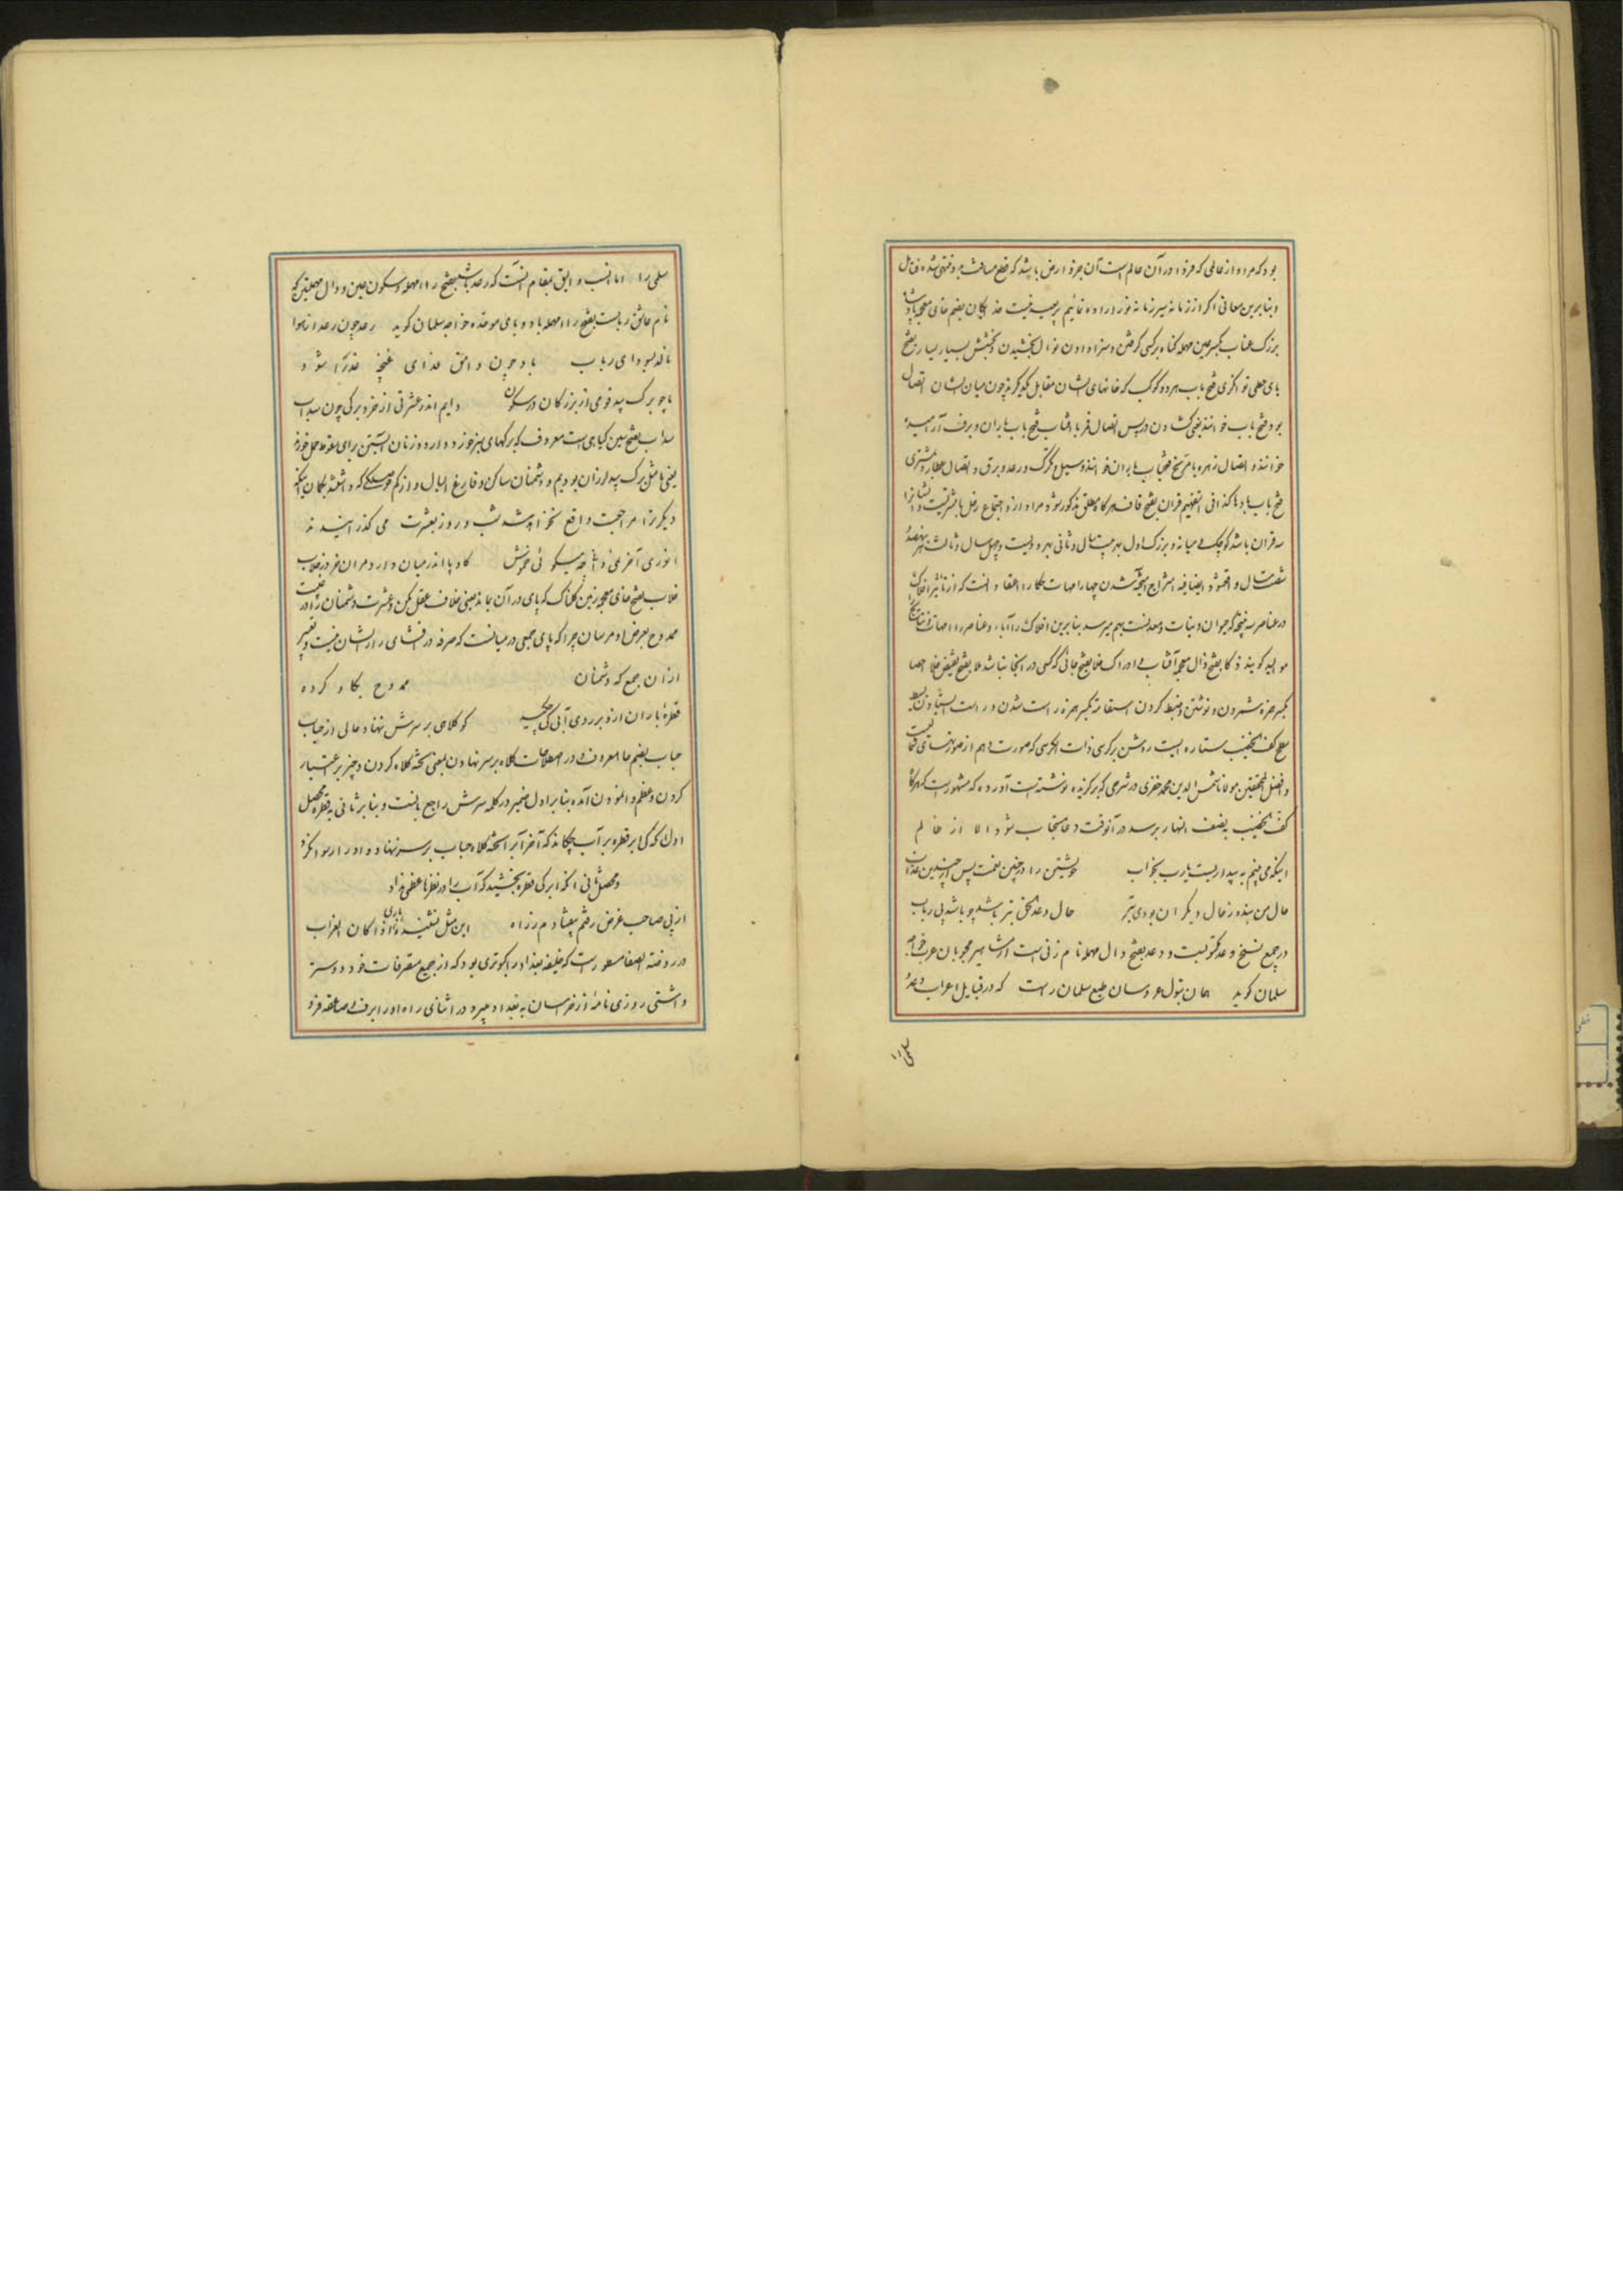 بود که مراد از عالمی که فردا در آن عالم است آن جزو ارض باشد که قطع مسافت
و بنابرین معانی اگر از زمانه نیز زمانه نوز داده خانیم بعید نیست
بزرگ عتاب بکسر عین مهمله گناه بر کسی گرفتن و سزا دادن نوال بخشیدن و بخشش بسیار بسیار بفتح
یای حطی توانگری فتح باب هر دو کوکب که خانهای ایشان مقابل یکدیگرند چون میان ایشان اتصال
بود فتح باب خوانند یعنی گشادن در پس اتصال قمر با آفتاب فتح باب باران و برف آرمیده
خوانند و اتصال زهره با مریخ فتح باب باران خوانند و سیل و تگرگ و رعد و برق و اتصال عطارد و مشتری
فتح باب بادها کذا فی التفهیم قران بفتح قاف هرگاه مطلق مذکور شود مراد از و اجتماع زحل با مشتریست
سه قران باشد کوچک و میانه و بزرگ اول به بیست سال و ثانی بهر دویست و چهل سال و ثالث
شصت سال واقع شود امتزاج آمیخته شدن چهار امهات حکما را اعتقاد آنست که از تاثیر افلاک
در عناصر سه نتیجه که حیوان و نبات و معدنست بهم میرسد بنابرین افلاک را آبا و عناصر را امهات و نتایج
موالید گویند ذکا بفتح ذال معجمه آفتاب ادراک خلا بفتح جائی که کسی در انجا نباشد ملا بفتح نقیض خلا احصا
بکسر همزه شمردن و نوشتن و ضبط کردن استقامة بکسر همزه راست شدن و راست ایستادن
سطح کف الخضیب ستاره ایست روشن بر کرسی ذات الکرسی که صورت دهم از صورتهای
افضل المحققین مولانا شمس الدین محمد خفری در شرحی که بر گزیده نوشته است آورده که مشهورست که هرگاه
کف الخضیب بنصف النهار برسد در آنوقت دعا مستجاب شود الا از ظالم
اینکه می بینم به بیداریست یارب یا بخواب خویشتن را در چنین نعمت پس از چندین عذاب
حال من بنده ز حال دیگران بودی بتر حال دعد الحق بتر باشد چو باشد بی رباب
در جمیع نسخ وعد مکتوبست و دعد بفتح دال مهمله نام زنی است از مشاهیر محبوبان عرب خواجه
سلمان گوید همان بتول عروسان طبع سلمان راست که در قبایل اعراب دعد
سلمی را
سلمی را اما انسب و الیق بمقام آنست که رعد باشد بفتح راء مهمله و سکون عین و دال مهملتین که
نام عاشق ربابست بفتح راء مهمله با دو بای موحده خواجه سلمان گوید رعد چون رعد از هوا
نالد بسودای رباب باد چون وامق عذای غنچه عذرا شود
ما چو برگ بید قومی از بزرگان در سکون دایم اندر عشرتی از خرد برگی چون سداب
سداب بفتح سین گیاهی است معروف که برگهای سبز خورد دارد و زنان آبستن برای سقوط حمل خورند
یعنی ما مثل برگ بید لرزان بودیم و دشمنان ساکن و فارغ البال
دیگر ترا مراجعت واقع نخواهد شد شب و روز بعشرت می گذرانیدند
انوری آخر نمیدانی چه میگوئی خموش گاو پا اندر میان دارد مران خر در خلاب
خلاب بفتح خای معجمه زمین گلناک که پای در آن بماند یعنی خلاف عقل مکن و عشرت دشمنان را در
ممدوح بعرض مرسان چرا که پای جمعی در میانست که صرفه در افشای راز ایشان نیست و تعبیر
از آن جمع که دشمنان ممدوح بگاو کرده
قطره باران ازو بر روی آبی کی چکید کو کلاهی بر سرش ننهاد حالی از حباب
حباب بضم حا معروف و در اصطلاحات کلاه بر سر نهادن بمعنی کلاه کردن و چیز بر اعتبار
کردن و عظم وانمودن آمده بنابر اول ضمیر در کلمه سرش راجع بآنست و بنابر ثانی بقطره محصل
اول که کی ابر قطره بر آب چکاند که آخر آبرا کلاه حباب بر سر ننهاد
و محصل ثانی آنکه ابر کی قطره بخشید که آب را در نظرها عظمی نداد
از پی صاحب غرض رفتم بیفتادم ز راه این مثل نشنیده باری اذا کان الغراب
در روضة الصفا مسطورست که خلیفه بغداد را کبوتری بود که از جمیع متصرفات خود دوستر
داشتی روزی نامهٔ از خراسان به بغداد میبرد در اثنای راه او را برف و صاعقه فرو